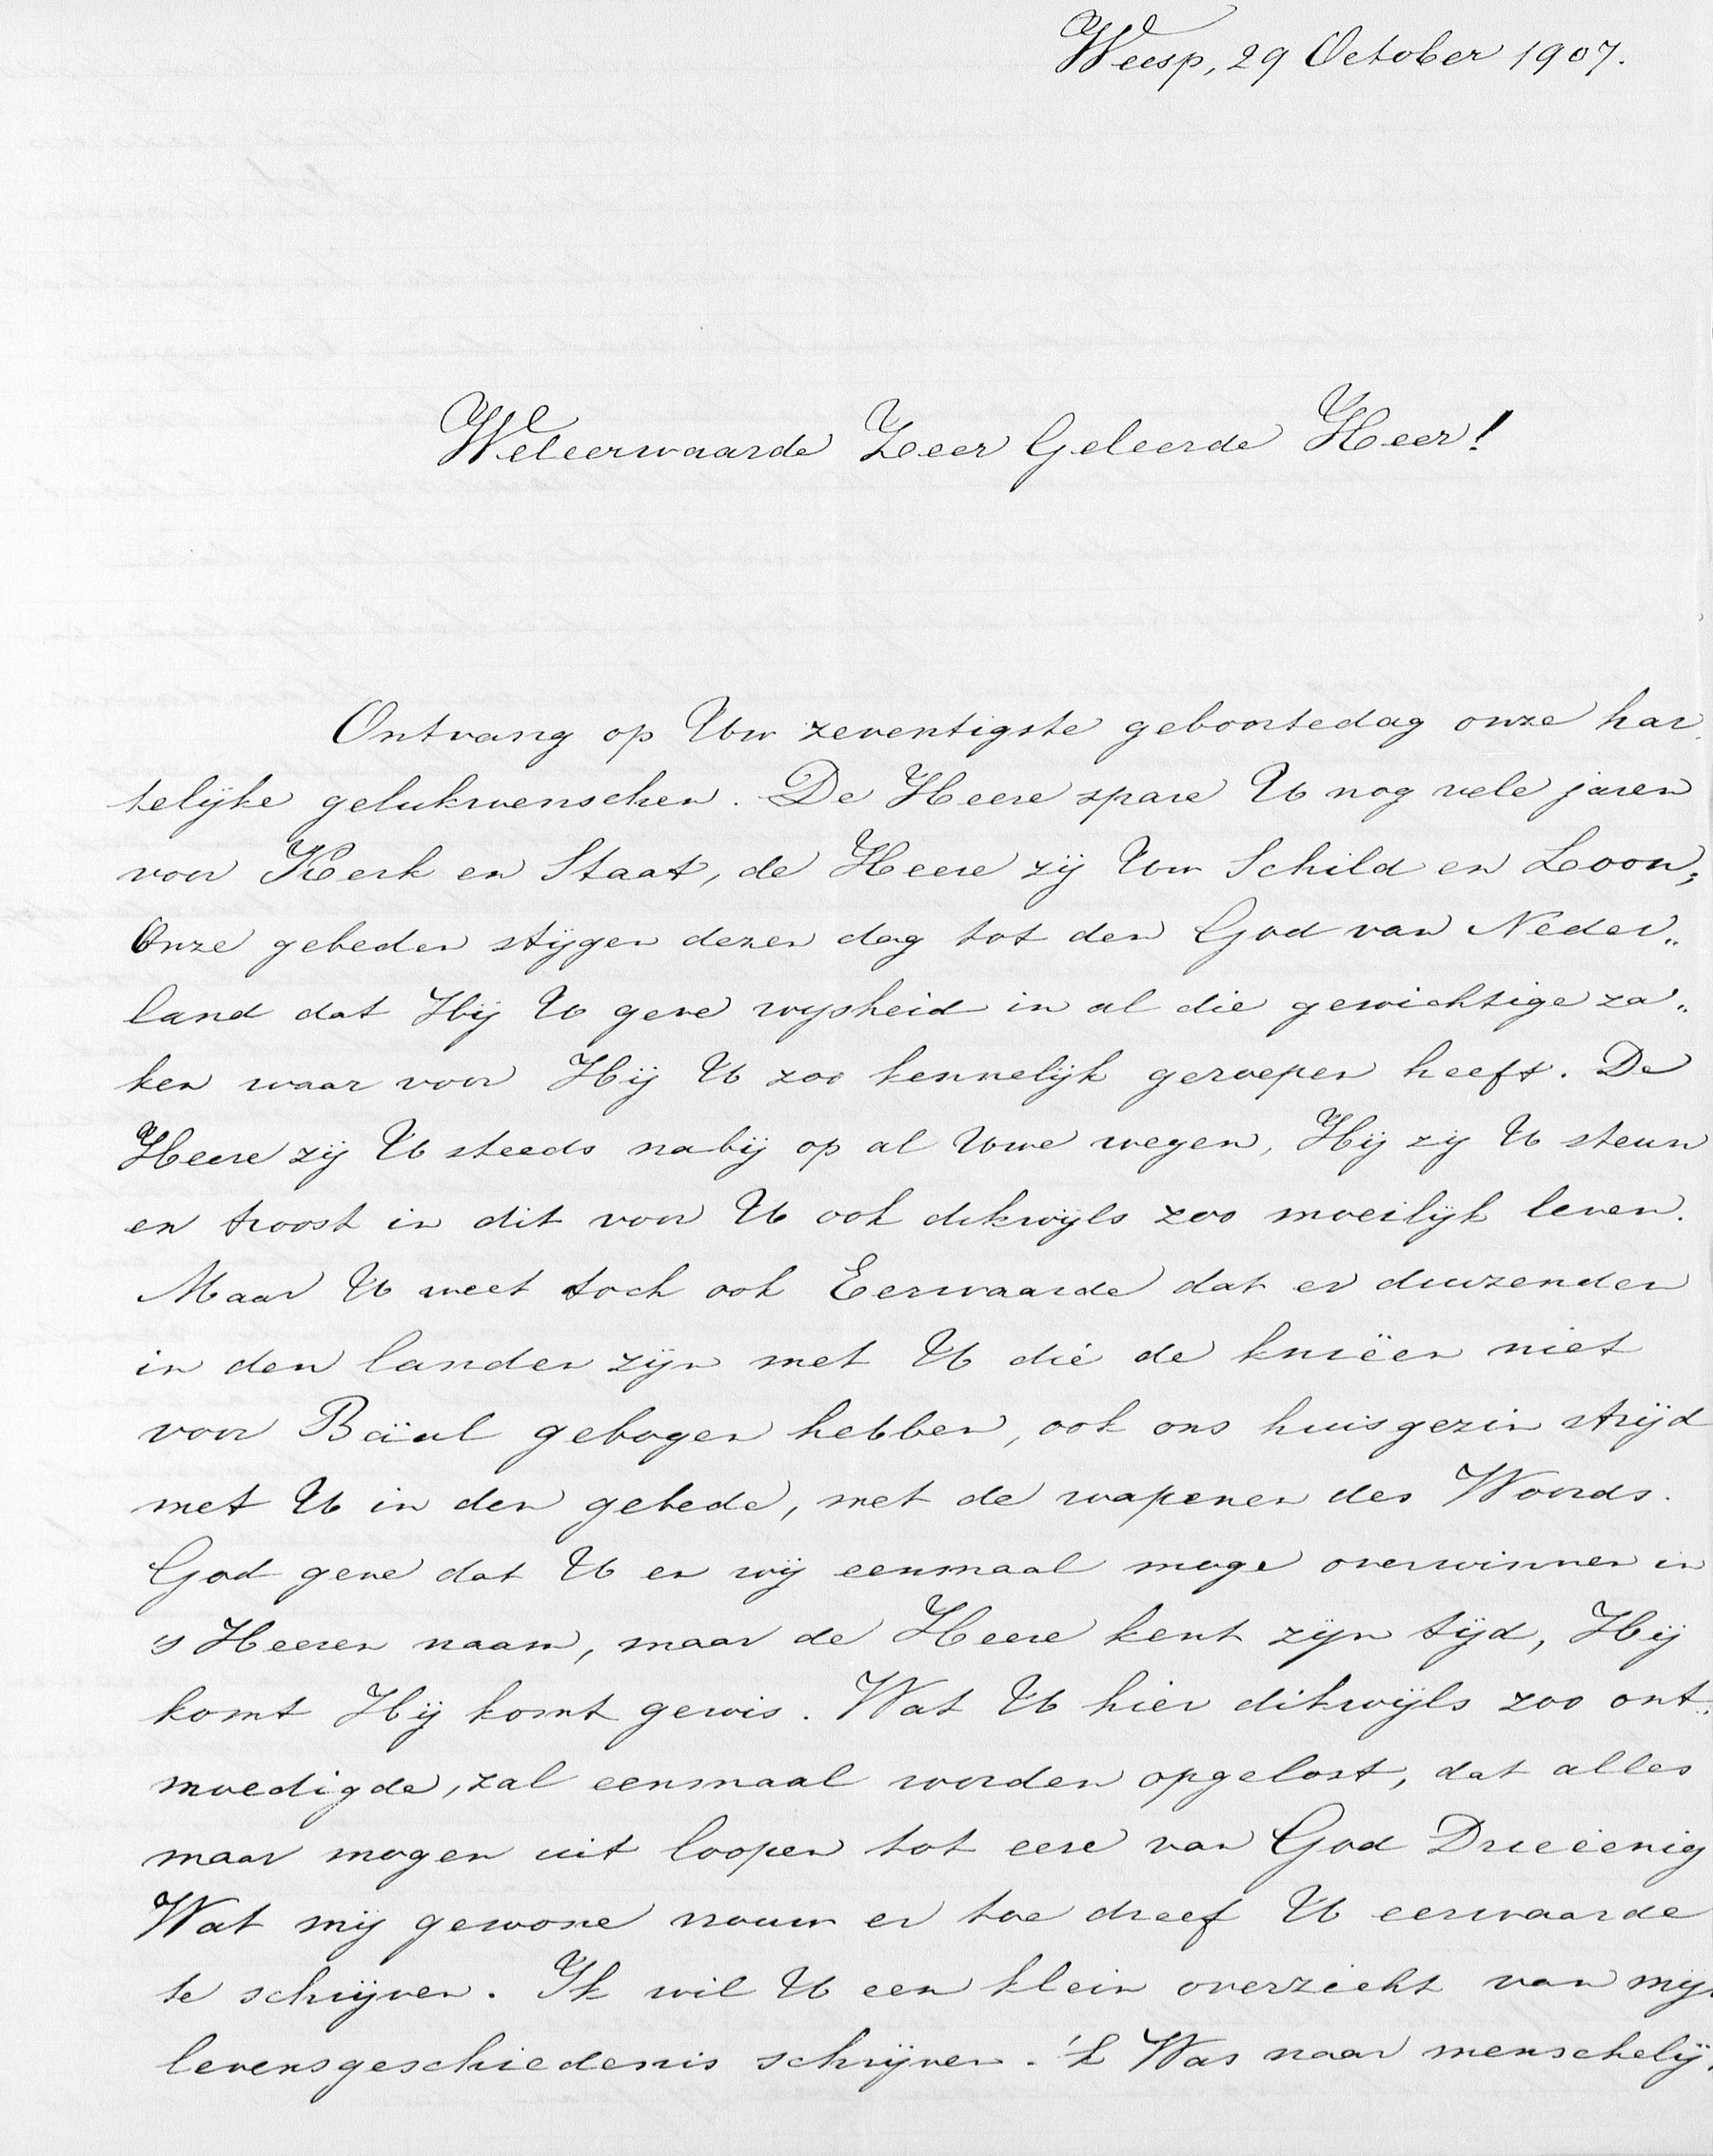 Weesp, 29 October 1907.
Weleerwaarde Zeer Geleerde Heer!
Ontvang op Uw zeventigste geboortedag onze har„
telijke gelukwenschen. De Heere spare U nog vele jaren
voor Kerk en Staat, de Heere zij Uw Schild en Loon;
Onze gebeden stijgen dezen dag tot den God van Neder„
land dat Hij U geve wijsheid in al die gewichtige za„
ken waar voor Hij U zoo kennelijk geroepen heeft. De
Heere zij U steeds nabij op al Uwe wegen, Hij zij U steun
en troost in dit voor U ook dikwijls zoo moeilijk leven.
Maar U weet toch ook Eerwaarde dat er duizenden
in den landen zijn met U die de knieën niet
voor Baäl gebogen hebben, ook ons huisgezin strijd
met U in den gebede, met de wapenen des Woords.
God geve dat U en wij eenmaal moge overwinnen in
's Heeren naam, maar de Heere kent zijn tijd, Hij
komt Hij komt gewis. Wat U hier dikwijls zoo ont„
moedigde, zal eenmaal worden opgelost, dat alles
maar mogen uit loopen tot eere van God Drieëenig
Wat mij gewone vrouw er toe dreef U eerwaarde
te schrijven. Ik wil U een klein overzicht van mijn
levensgeschiedenis schrijven. 't Was naar menschelij„